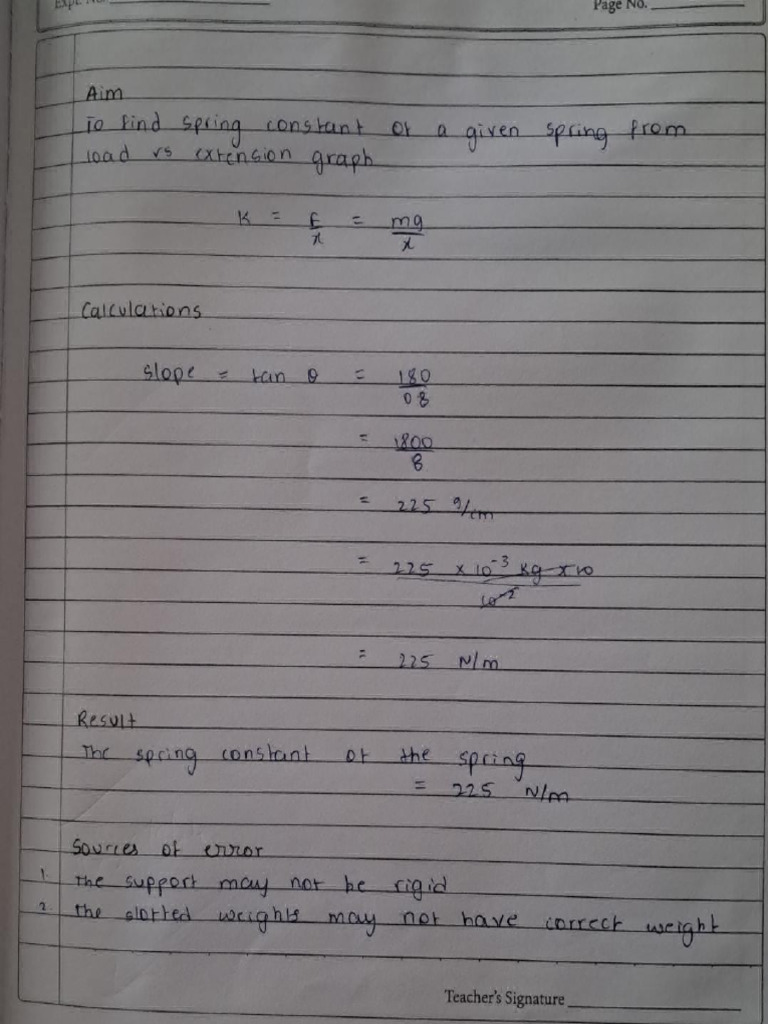 Expt. No.
Page No.
Aim
To find spring constant of a given spring from
load vs extension graph
K = F/x = mg/x
Calculations
slope = tan θ = 180/08
= 1800/8
= 225 g/cm
= 225 × 10⁻³ kg × 10 / 10⁻²
= 225 N/m
Result
The spring constant of the spring
= 225 N/m
Sources of error
1. The support may not be rigid
2. The slotted weights may not have correct weight
Teacher's Signature